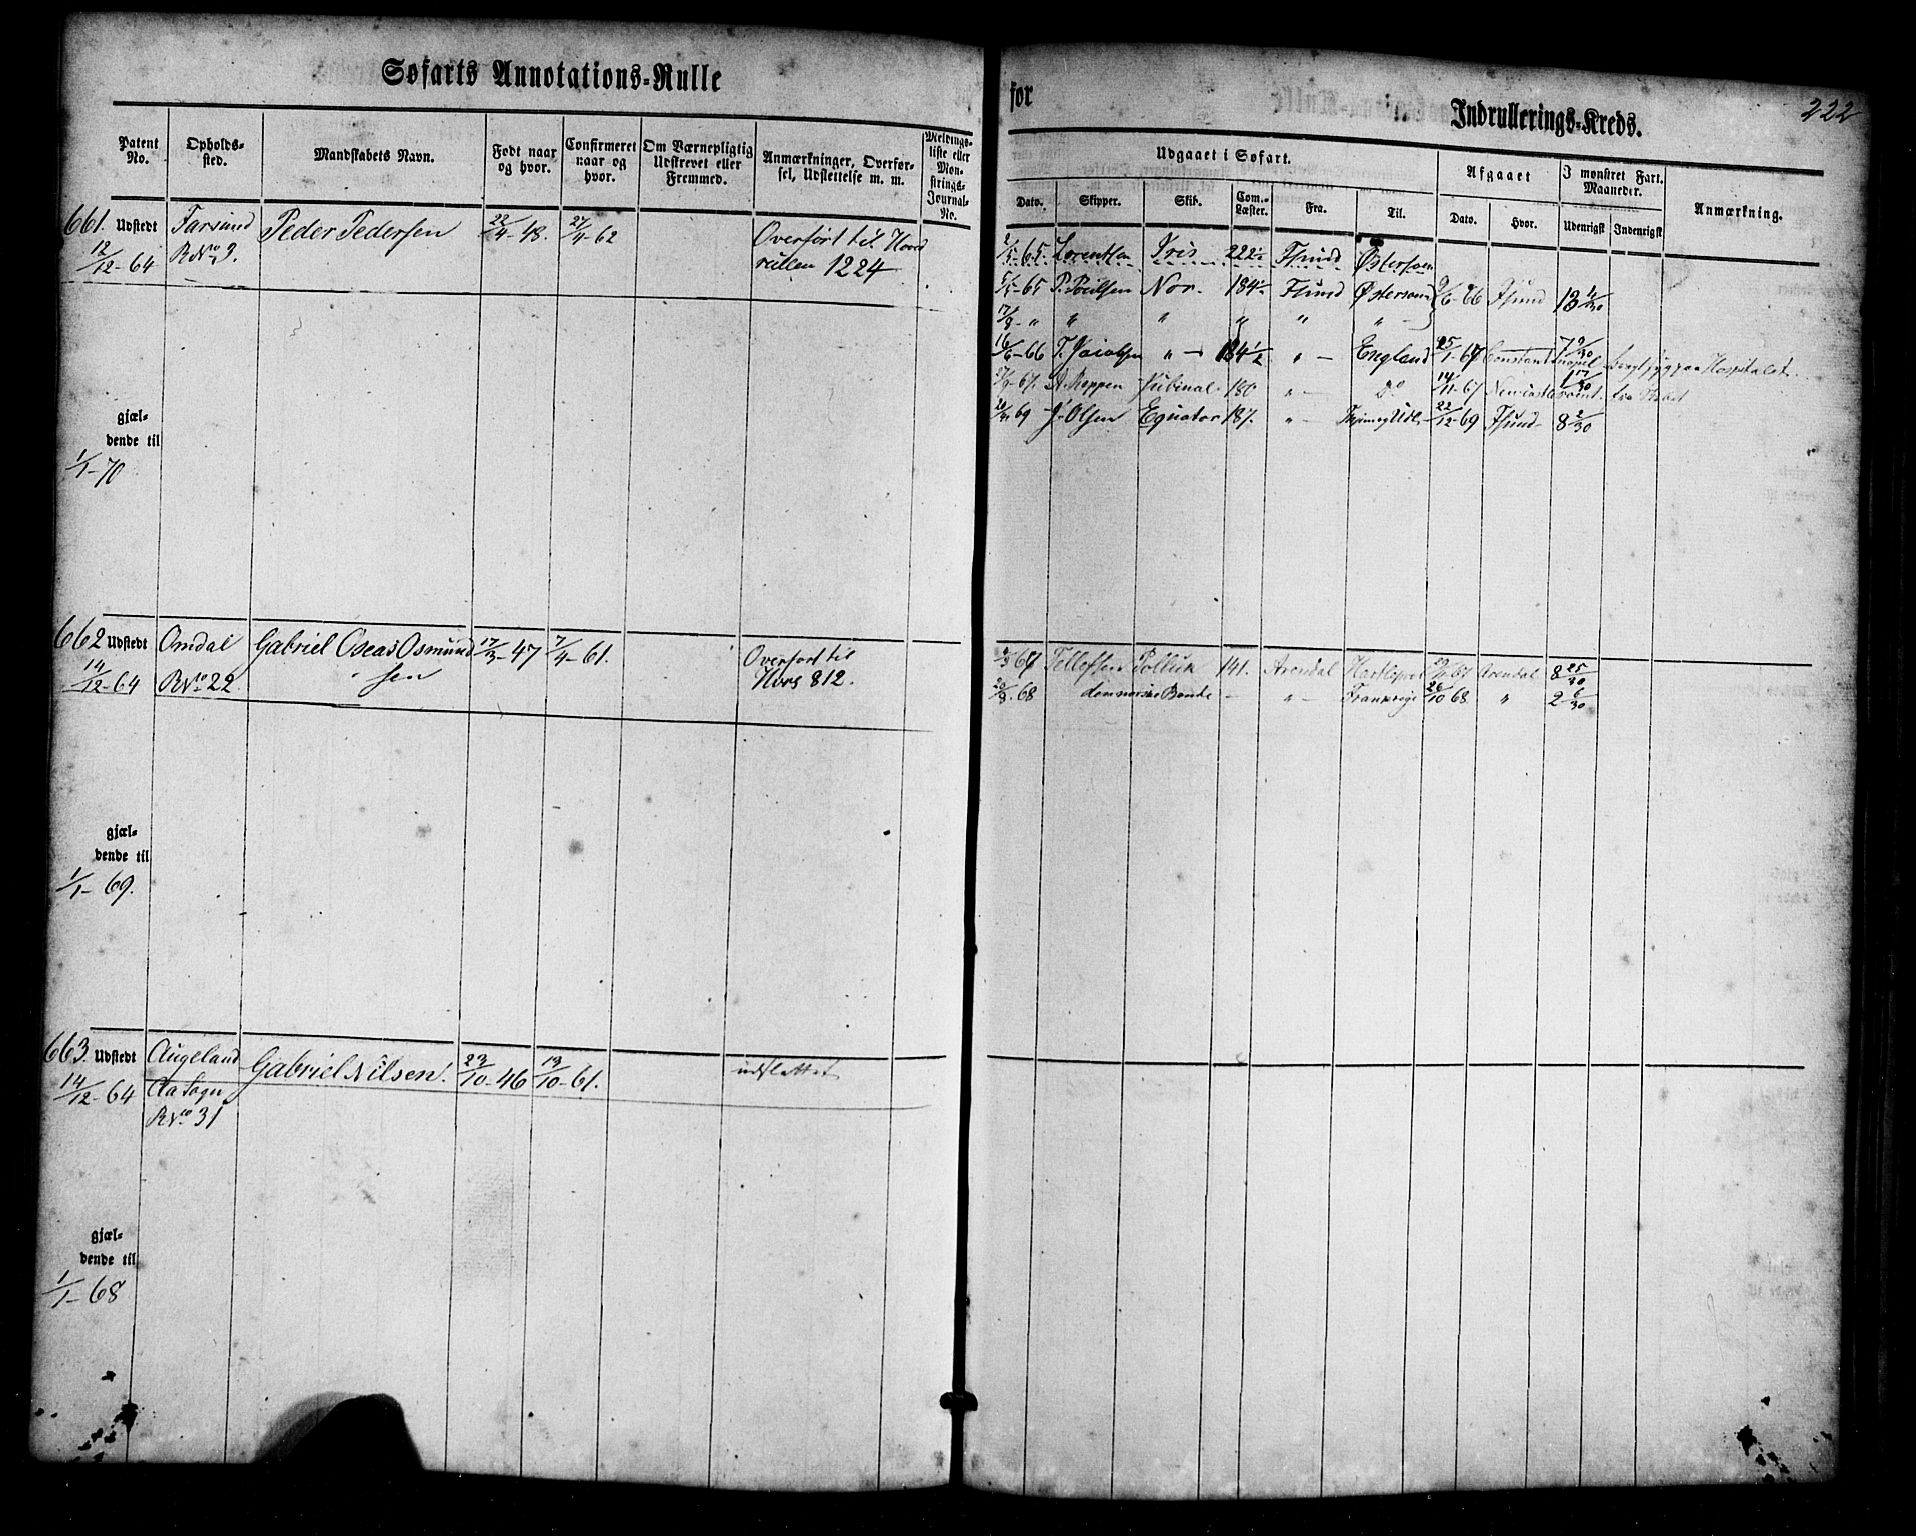 Søfarts Annotations-Rulle
for
Indrullerings-Kreds.
222
Patent No.
Opholds-sted.
Mandskabets Navn.
Født naar og hvor.
Confirmeret naar og hvor.
Om Værnepligtig Udskrevet eller Fremmed.
Anmærkninger, Overførsel, Udslettelse m. m.
Meldingsliste eller Mønstrings-Journal-No.
Udgaaet i Søfart.
Afgaaet
I mønstret Fart. Maaneder.
Anmærkning.
Dato.
Skipper.
Skib.
Com.-Læster.
Fra.
Til.
Dato.
Hvor.
Udenrigsk
Indenrigsk
661. Udstedt Farsund Peder Pedersen 22/4-48. 27/4-62 Overført til Hoved
12/12-64 RNo 3. rullen 1224
Lorentsen Iris 222½ Fsund Østersøen
5/5-65 P. Poulsen Nor. 184½ Fsund Østersøen 9/6-66 Fsund 13 4/30
17/8-" " " " " "
16/6-66 T. Jacobsen " 184½ " England 25/1-67 Constantinopel 7 9/30 paa Hospitalet.
A. Reppen Jubinal 180 " Do 14/11-67 Newcastle 1 17/30
69 J. Olsen Equator 187. " 22/12-69 Fsund 8 2/30
gjæl-
dende til
1/1-70
662 Udstedt Omdal Gabriel Oseas Osmund 17/3-47 7/4-61. Overført til
14/12-64 RNo 22 sen Hovs 812.
Tellefsen Pollux 141. Arendal Hartlepool 67 Arendal 8 25/30
20/8-68 den norske Bonde - " Frankrige 26/10 68 " 2 6/30
gjæl-
dende til
1/1-69.
663. Udstedt Augeland Gabriel Nilsen. 23/10-46 13/10-61. udslettet
14/12-64 Oa Sogn
RNo 31
gjæl-
dende til
1/1-68